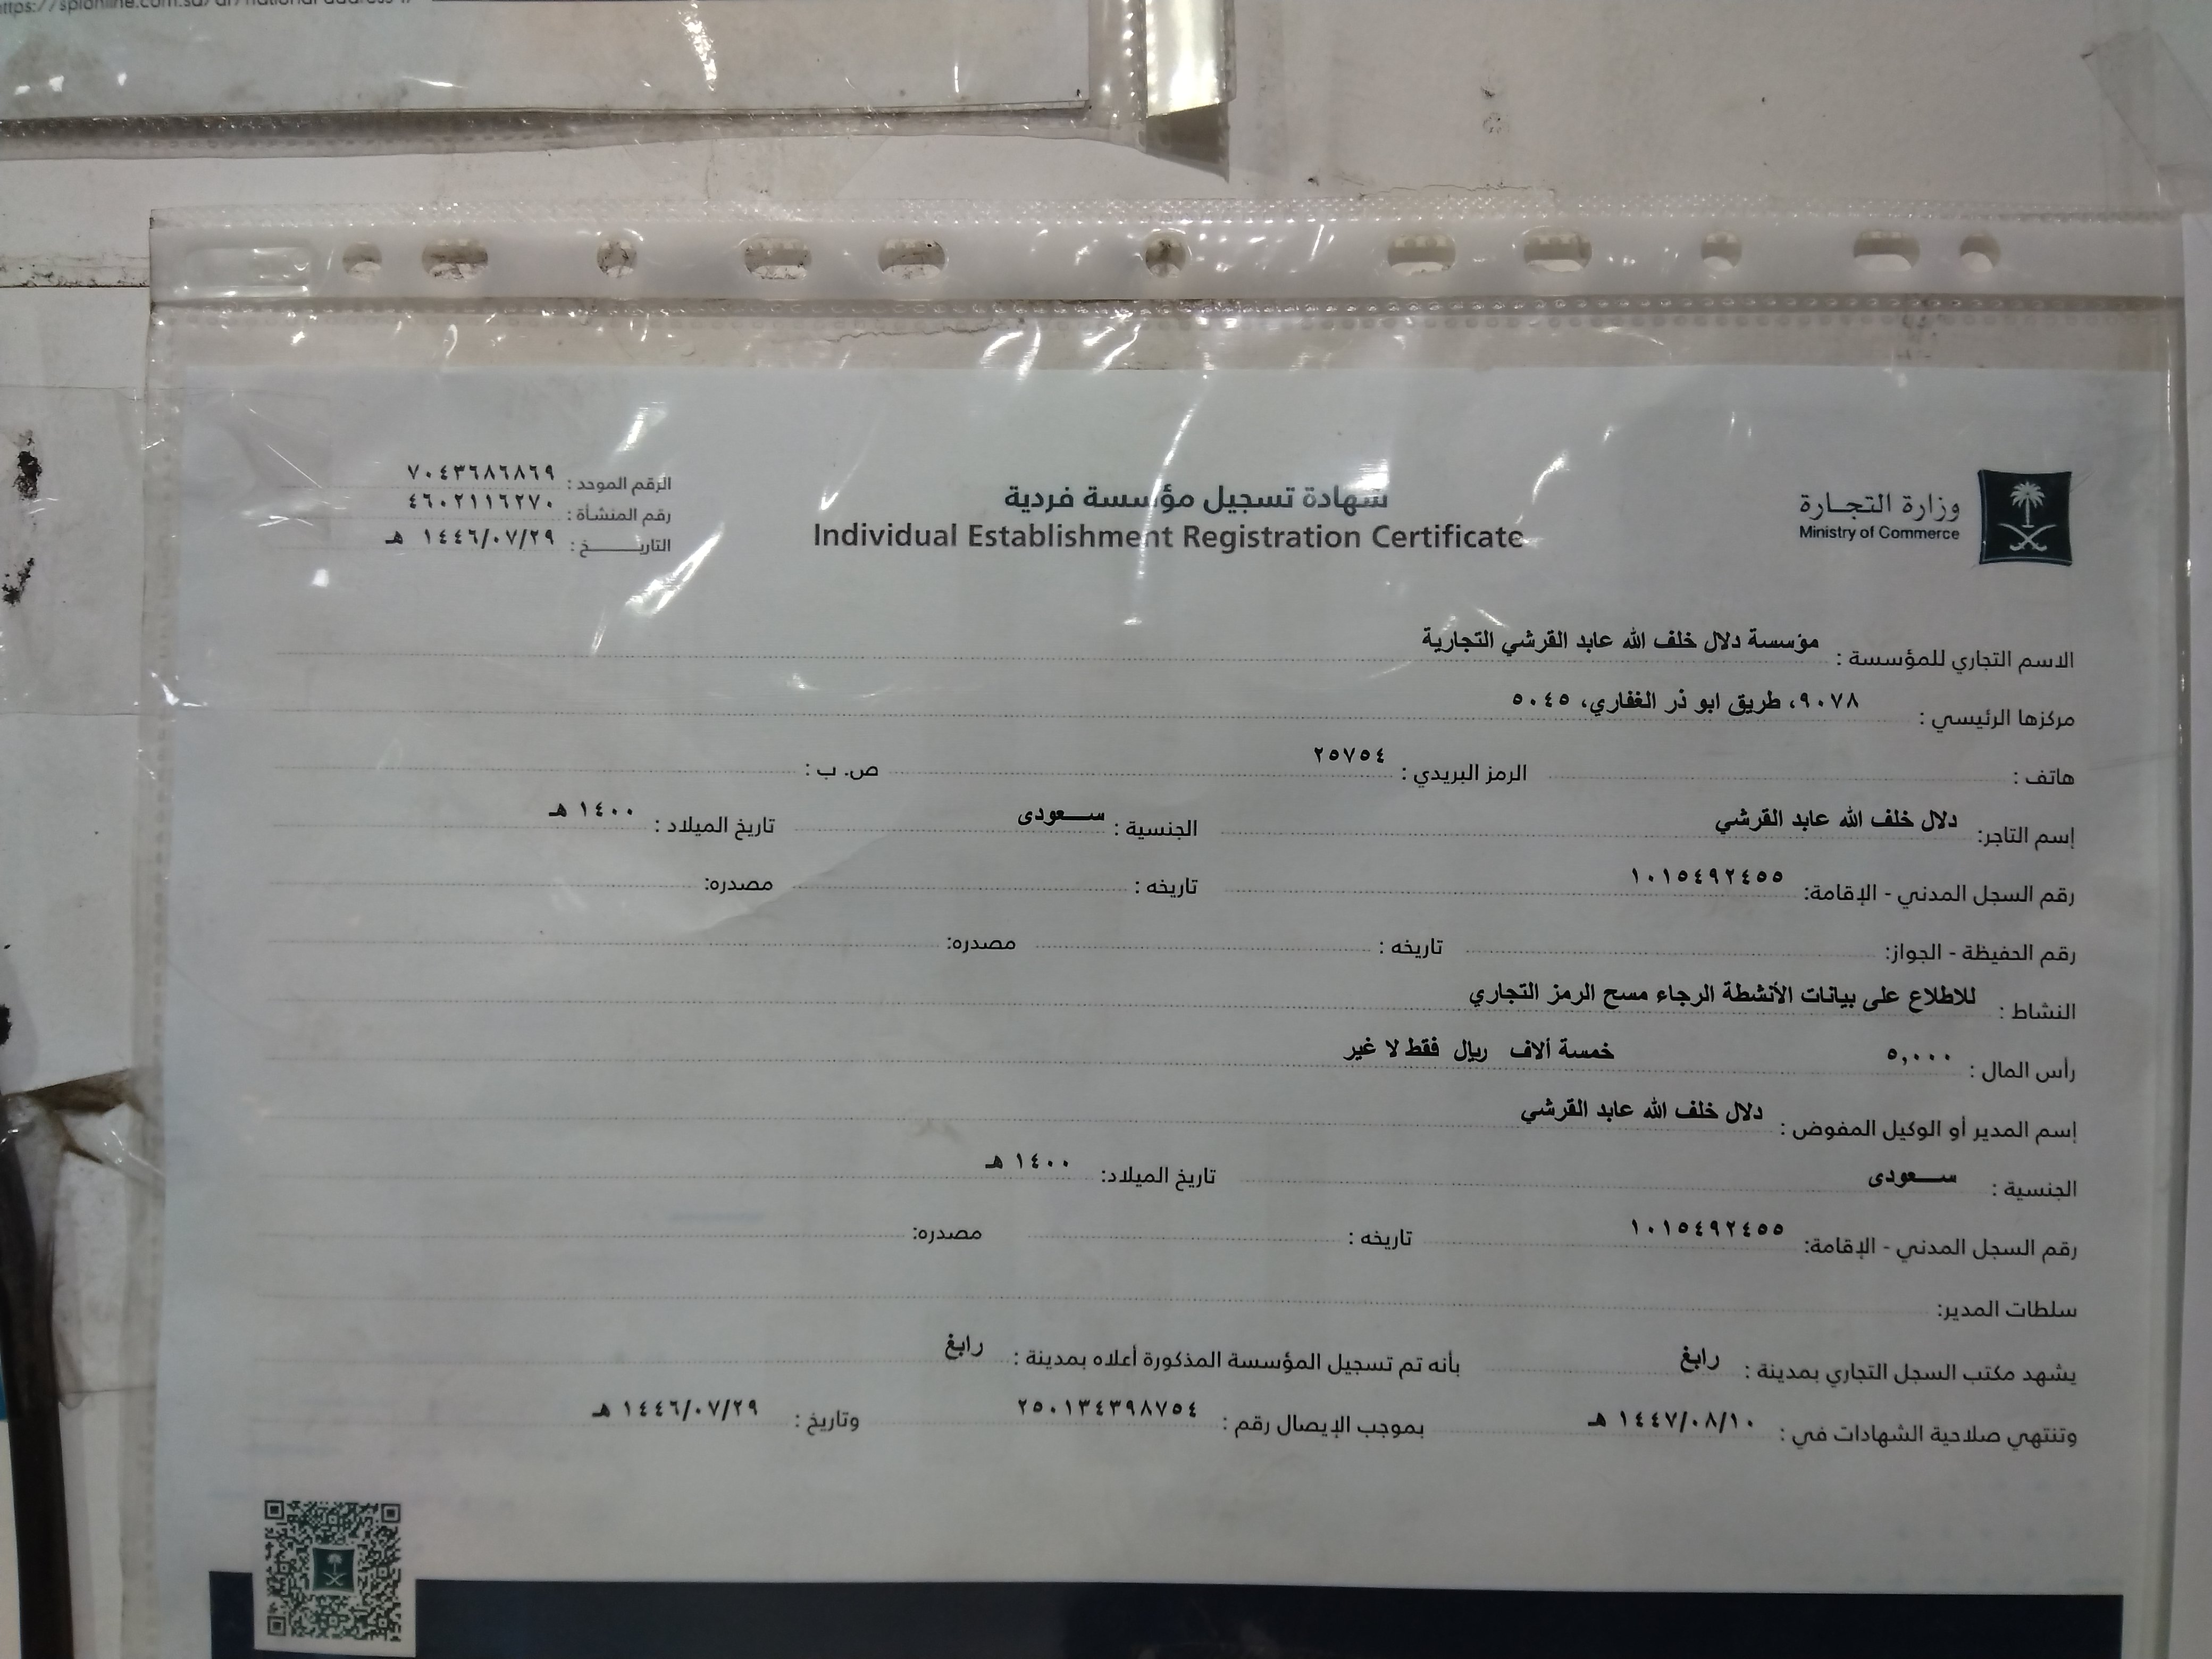 وزارة التجارة
Ministry of Commerce
شهادة تسجيل مؤسسة فردية
Individual Establishment Registration Certificate
الرقم الموحد : ٧٠٤٣٦٨٦٨٦٩
رقم المنشأة : ٤٦٠٢١١٦٢٧٠
التاريـــــخ : ١٤٤٦/٠٧/٢٩ هـ
الاسم التجاري للمؤسسة : مؤسسة دلال خلف الله عابد القرشي التجارية
مركزها الرئيسي : ٩٠٧٨، طريق ابو ذر الغفاري، ٥٠٤٥
هاتف : الرمز البريدي : ٢٥٧٥٤ ص. ب :
إسم التاجر: دلال خلف الله عابد القرشي الجنسية : ســـعودى تاريخ الميلاد : ١٤٠٠ هـ
رقم السجل المدني - الإقامة: ١٠١٥٤٩٢٤٥٥ تاريخه : مصدره:
رقم الحفيظة - الجواز: تاريخه : مصدره:
النشاط : للاطلاع على بيانات الأنشطة الرجاء مسح الرمز التجاري
رأس المال : ٥,٠٠٠ خمسة ألاف ريال فقط لا غير
إسم المدير أو الوكيل المفوض : دلال خلف الله عابد القرشي
الجنسية : ســـعودى تاريخ الميلاد: ١٤٠٠ هـ
رقم السجل المدني - الإقامة: ١٠١٥٤٩٢٤٥٥ تاريخه : مصدره:
سلطات المدير:
يشهد مكتب السجل التجاري بمدينة : رابغ بأنه تم تسجيل المؤسسة المذكورة أعلاه بمدينة : رابغ
وتنتهي صلاحية الشهادات في : ١٤٤٧/٠٨/١٠ هـ بموجب الإيصال رقم : ٢٥٠١٣٤٣٩٨٧٥٤ وتاريخ : ١٤٤٦/٠٧/٢٩ هـ